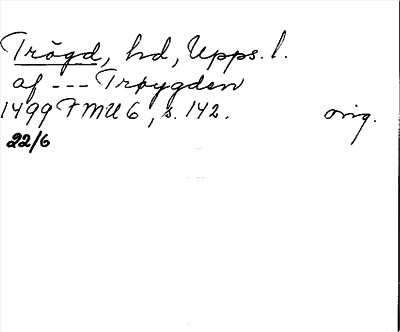 Trögd, hd, Upps. l.
af --- Trøygden
1499 FMU 6, s. 142. orig.
22/6